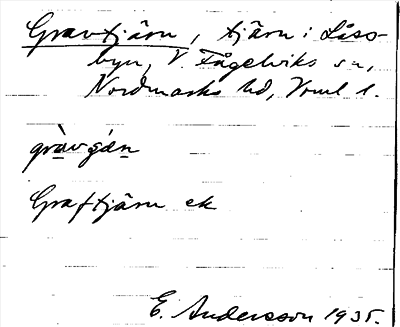 Gravtjärn, tjärn i Låss-
byn, V. Fågelviks sn,
Nordmarks hd, Vrml l.
gràvǥæ̀n
Graftjärn ek
E. Andersson 1935.